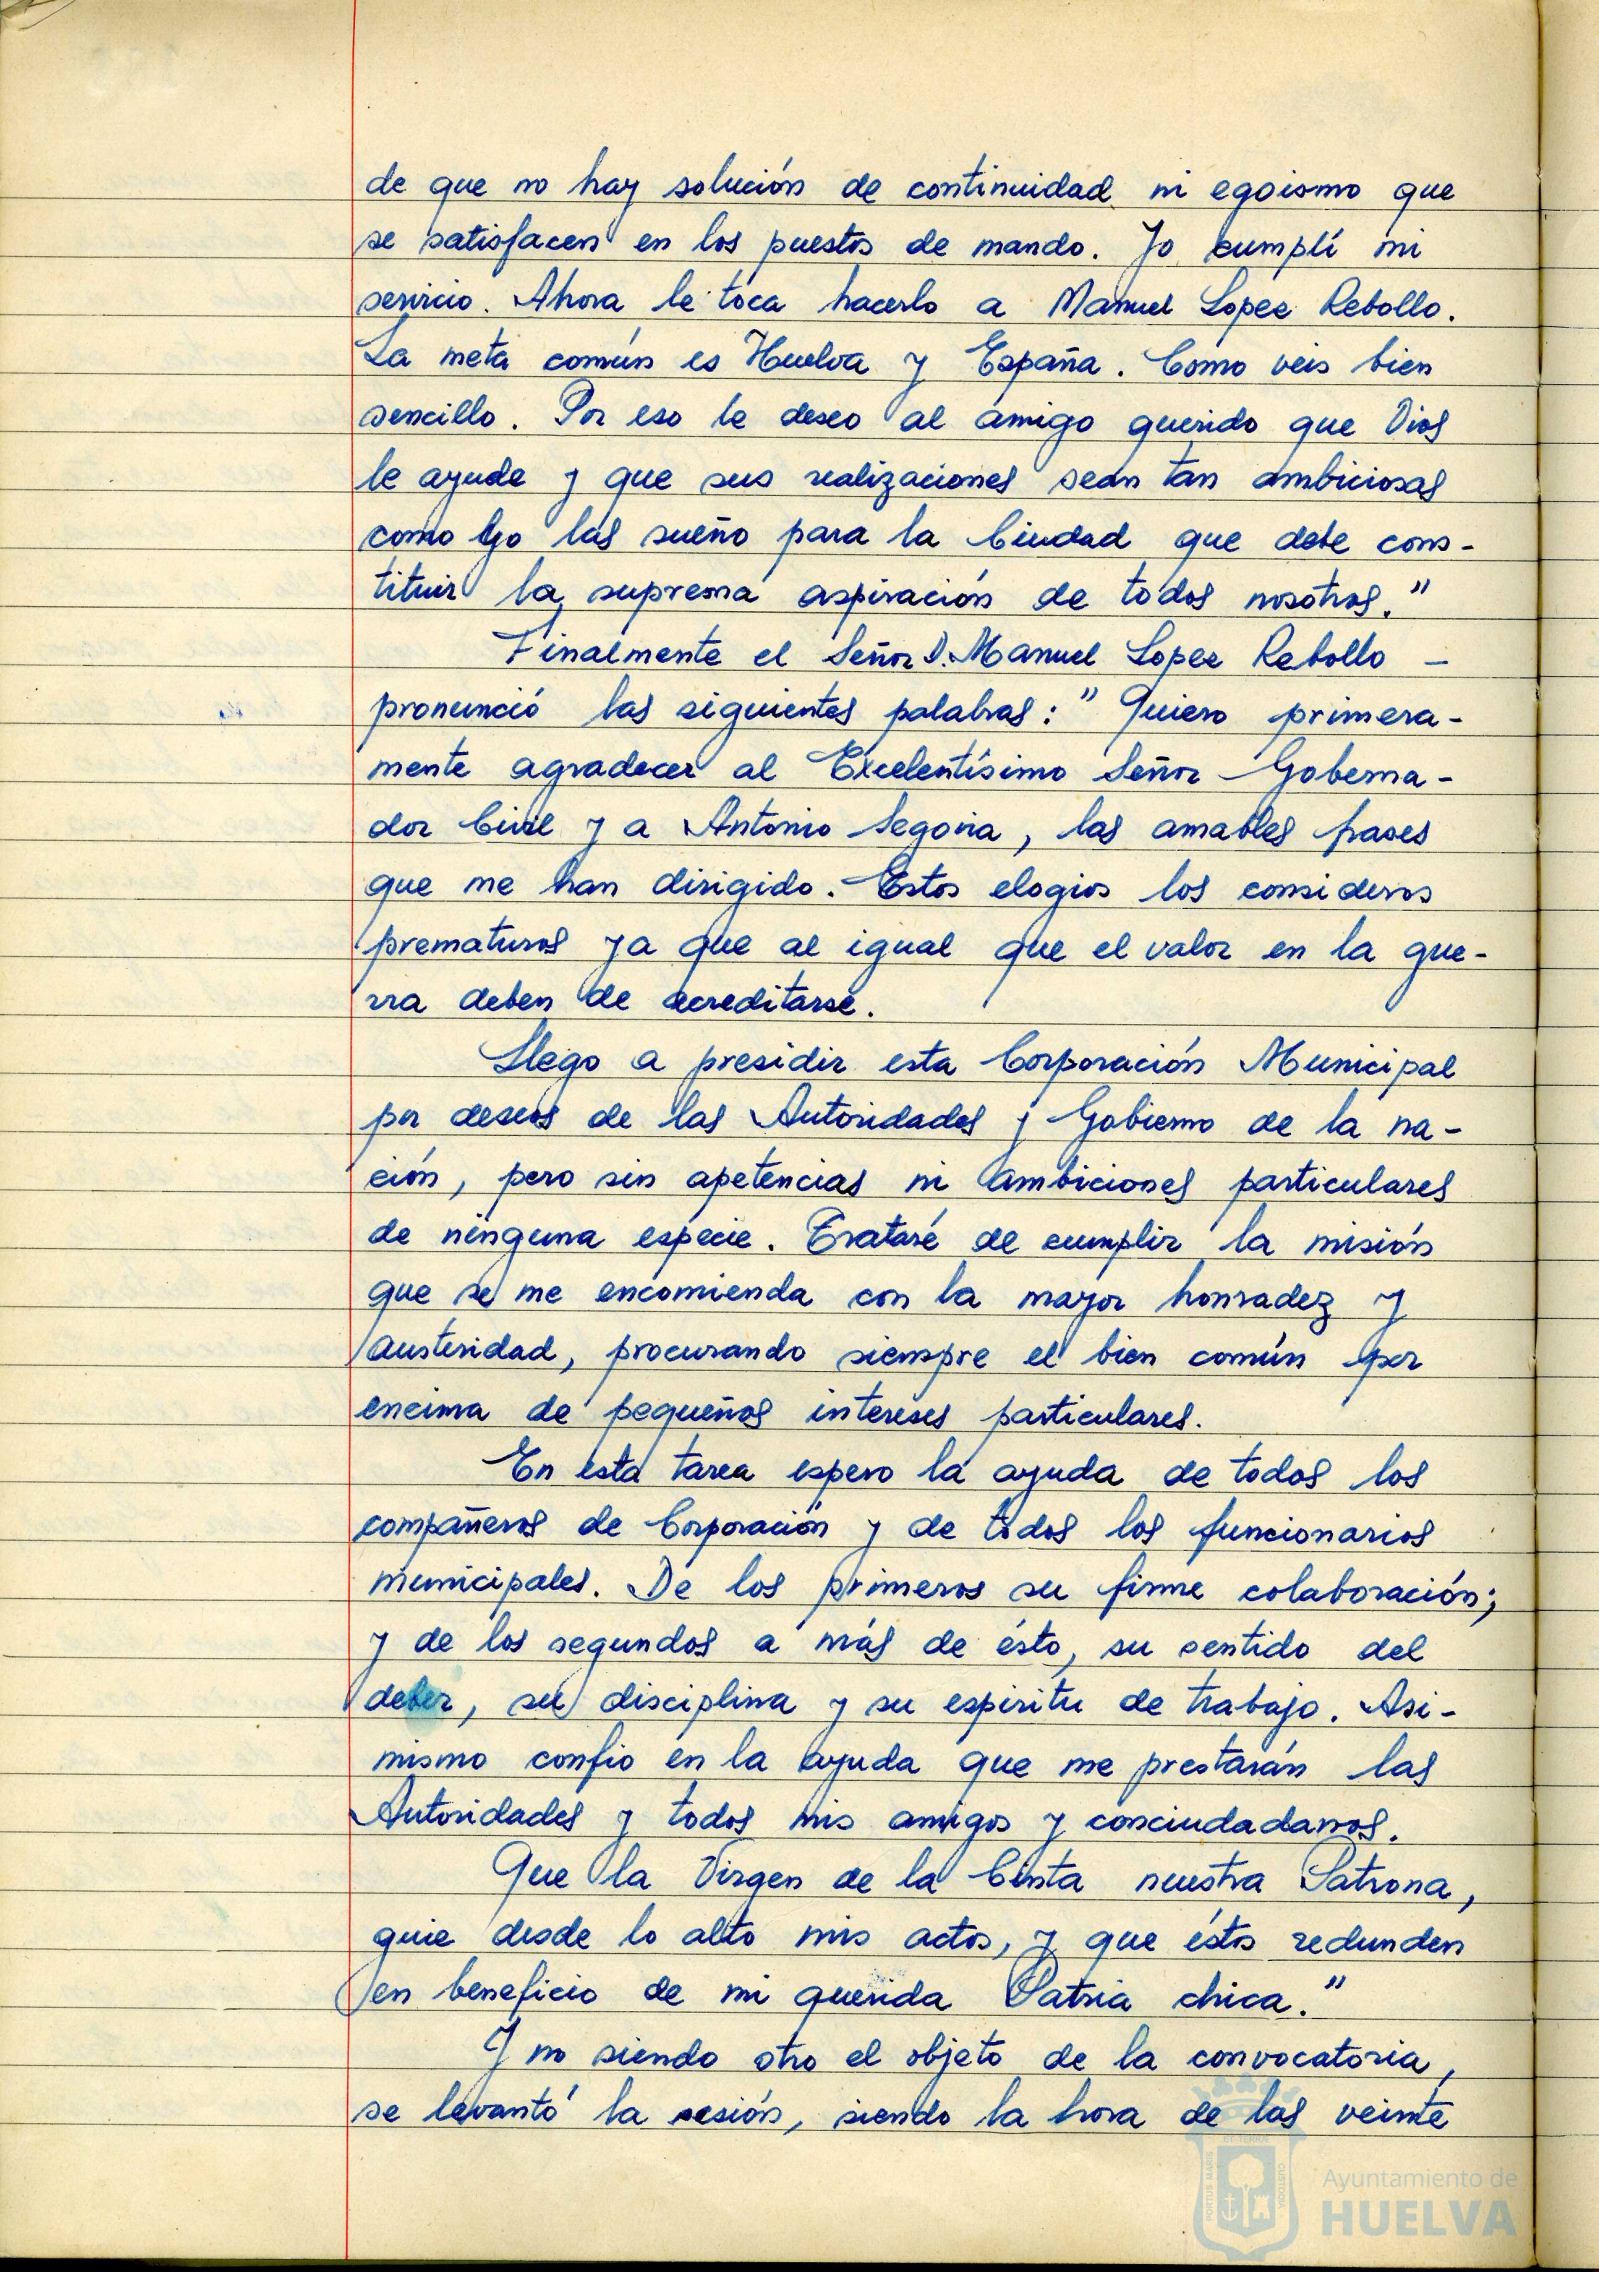 de que no hay solución de continuidad ni egoismo que
se satisfacen en los puestos de mando. Yo cumplí mi
servicio. Ahora le toca hacerlo a Manuel Lopez Rebollo.
La meta común es Huelva y España. Como veis bien
sencillo. Por eso le deseo al amigo querido que Dios
le ayude y que sus realizaciones sean tan ambiciosas
como yo las sueño para la Ciudad que debe cons-
tituir la suprema aspiración de todos nosotros."
Finalmente el Señor D. Manuel Lopez Rebollo -
pronunció las siguientes palabras: " Quiero primera-
mente agradecer al Excelentísimo Señor Goberna-
dor Civil y a Antonio Segovia, las amables frases
que me han dirigido. Estos elogios los consideros
prematuros ya que al igual que el valor en la gue-
rra deben de acreditarse.
Llego a presidir esta Corporación Municipal
por deseos de las Autoridades y Gobierno de la na-
ción, pero sin apetencias ni ambiciones particulares
de ninguna especie. Trataré de cumplir la misión
que se me encomienda con la mayor honradez y
austeridad, procurando siempre el bien común por
encima de pequeños intereses particulares.
En esta tarea espero la ayuda de todos los
compañeros de Corporación y de todos los funcionarios
municipales. De los primeros su firme colaboración;
y de los segundos a más de ésto, su sentido del
deber, su disciplina y su espiritu de trabajo. Asi-
mismo confio en la ayuda que me prestarán las
Autoridades y todos mis amigos y conciudadanos.
Que la Virgen de la Cinta nuestra Patrona,
guie desde lo alto mis actos, y que éstos redunden
en beneficio de mi querida Patria chica."
Y no siendo otro el objeto de la convocatoria,
se levantó la sesión, siendo la hora de las veinte
PORTUS MARIS
ET TERRAE
CUSTODIA
Ayuntamiento de
HUELVA